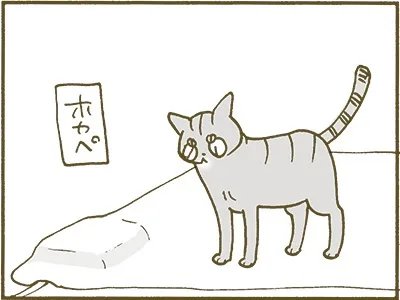 ホカペ